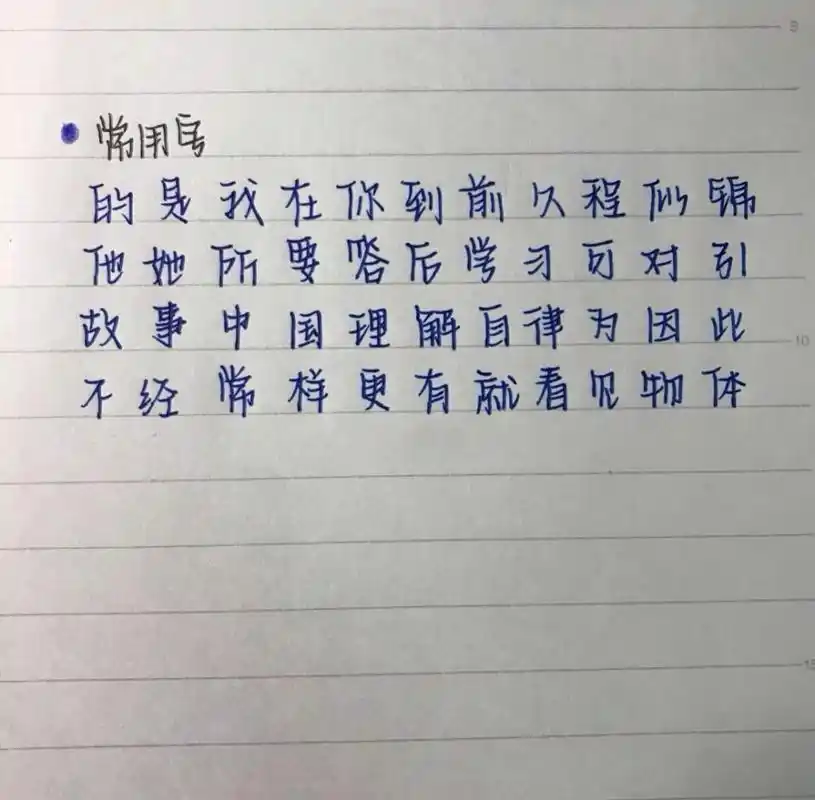 9
常用字
的是我在你到前久程似锦
他她所要答后学习可对引
故事中国理解自律为因此
10
不经常样更有就看见物体
15